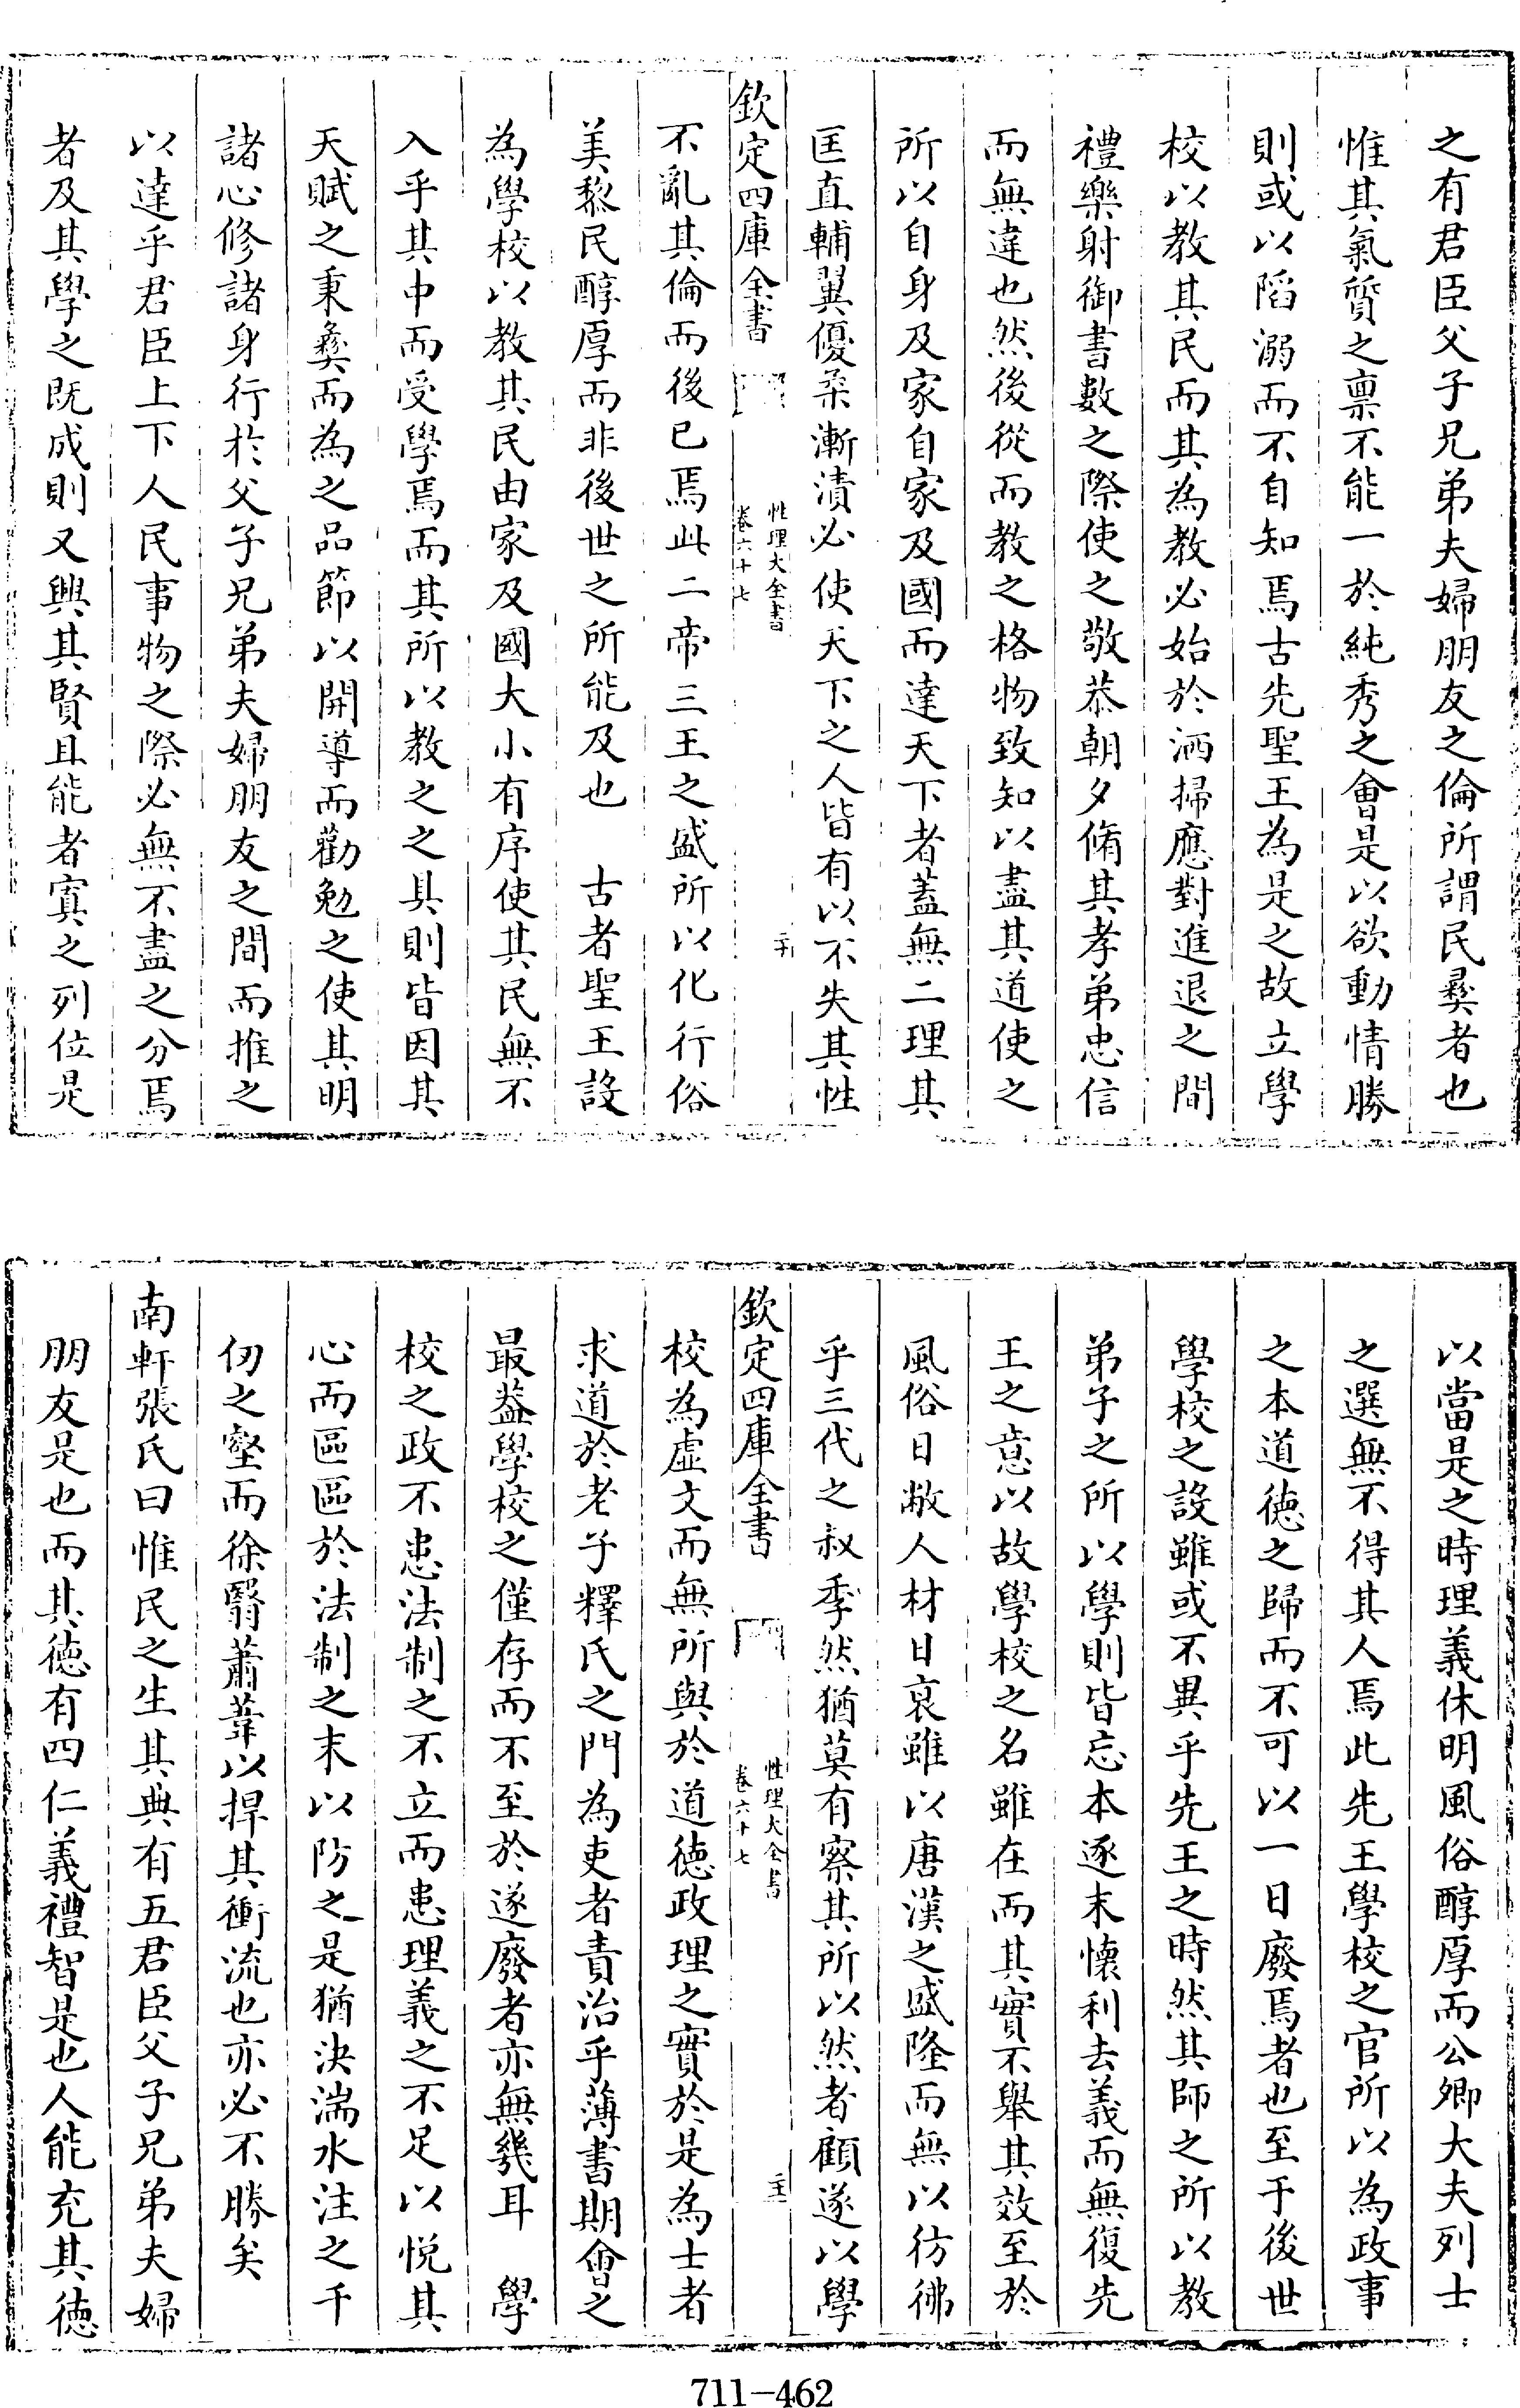 之有君臣父子兄弟夫婦朋友之倫所謂民彛者也
惟其氣質之禀不能一於純秀之會是以欲動情勝
則或以陷溺而不自知焉古先聖王為是之故立學
校以教其民而其為教必始於洒掃應對進退之間
禮樂射御書數之際使之敬恭朝夕脩其孝弟忠信
而無違也然後從而教之格物致知以盡其道使之
所以自身及家自家及國而達天下者蓋無二理其
匡直輔翼優柔漸漬必使天下之人皆有以不失其性
欽定四庫全書
性理大全書
卷六十七
二十
不亂其倫而後已焉此二帝三王之盛所以化行俗
美黎民醇厚而非後世之所能及也 古者聖王設
為學校以教其民由家及國大小有序使其民無不
入乎其中而受學焉而其所以教之之具則皆因其
天賦之秉彛而為之品節以開導而勸勉之使其明
諸心修諸身行於父子兄弟夫婦朋友之間而推之
以達乎君臣上下人民事物之際必無不盡之分焉
者及其學之既成則又興其賢且能者寘之列位是
以當是之時理義休明風俗醇厚而公卿大夫列士
之選無不得其人焉此先王學校之官所以為政事
之本道徳之歸而不可以一日廢焉者也至于後世
學校之設雖或不異乎先王之時然其師之所以教
弟子之所以學則皆忘本逐末懐利去義而無復先
王之意以故學校之名雖在而其實不舉其效至於
風俗日敝人材日衰雖以唐漢之盛隆而無以彷彿
乎三代之叔季然猶莫有察其所以然者顧遂以學
欽定四庫全書
性理大全書
卷六十七
二十一
校為虚文而無所與於道徳政理之實於是為士者
求道於老子釋氏之門為吏者責治乎薄書期會之
最葢學校之僅存而不至於遂廢者亦無幾耳 學
校之政不患法制之不立而患理義之不足以悦其
心而區區於法制之末以防之是猶決湍水注之千
仞之壑而徐翳蕭葦以捍其衝流也亦必不勝矣
南軒張氏曰惟民之生其典有五君臣父子兄弟夫婦
朋友是也而其徳有四仁義禮智是也人能充其徳
711-462